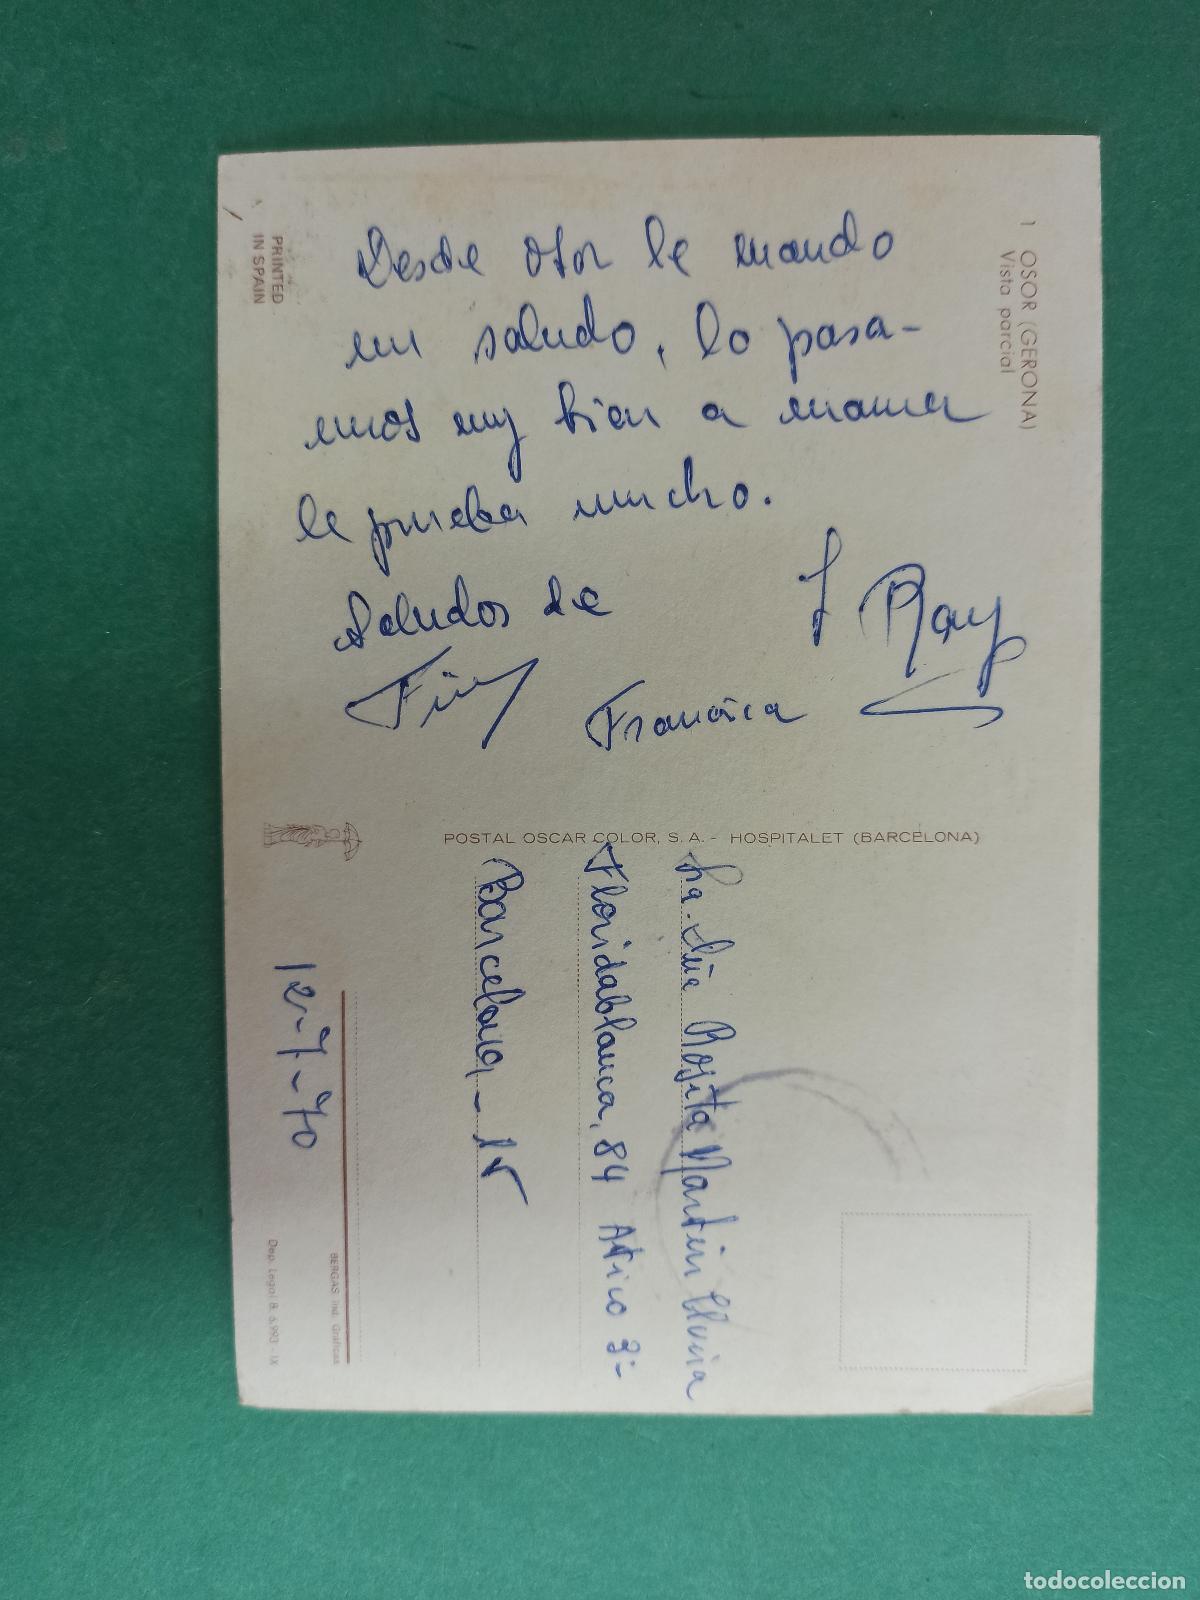 Desde Osor le mando
un saludo, lo pasa-
mos muy bien a mama
le prueba mucho.
Saludos de
Francisca
y Ray
1 OSOR (GERONA)
Vista parcial
PRINTED
IN SPAIN
POSTAL OSCAR COLOR, S. A. - HOSPITALET (BARCELONA)
Rosita Martin
Floridablanca, 84 Atico 3ª
Barcelona - 15
12-7-70
BERGAS Ind. Gráficas
Dep. Legal B. 6.993 - IX
todocoleccion